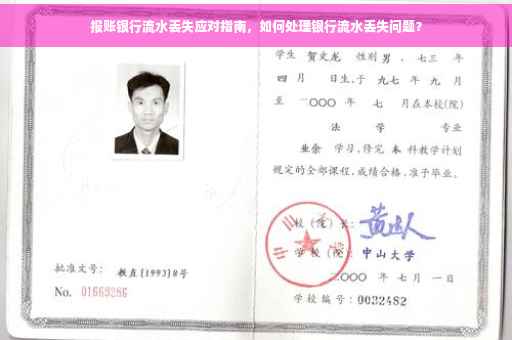 报账银行流水丢失应对指南，如何处理银行流水丢失问题？
学生 贺文龙 性别 男，七三 年
四 月 日生，于 九七 年 九 月
至 二〇〇〇 年 七 月在本校(院)
法 学 专业
业余 学习，修完 本 科教学计划
规定的全部课程，成绩合格，准予毕业。
校(院)长：
学 校(院)：中山大学
二〇〇〇 年 七 月 一 日
学校编号：0032482
批准文号：教直[1993]8号
No. 01669286